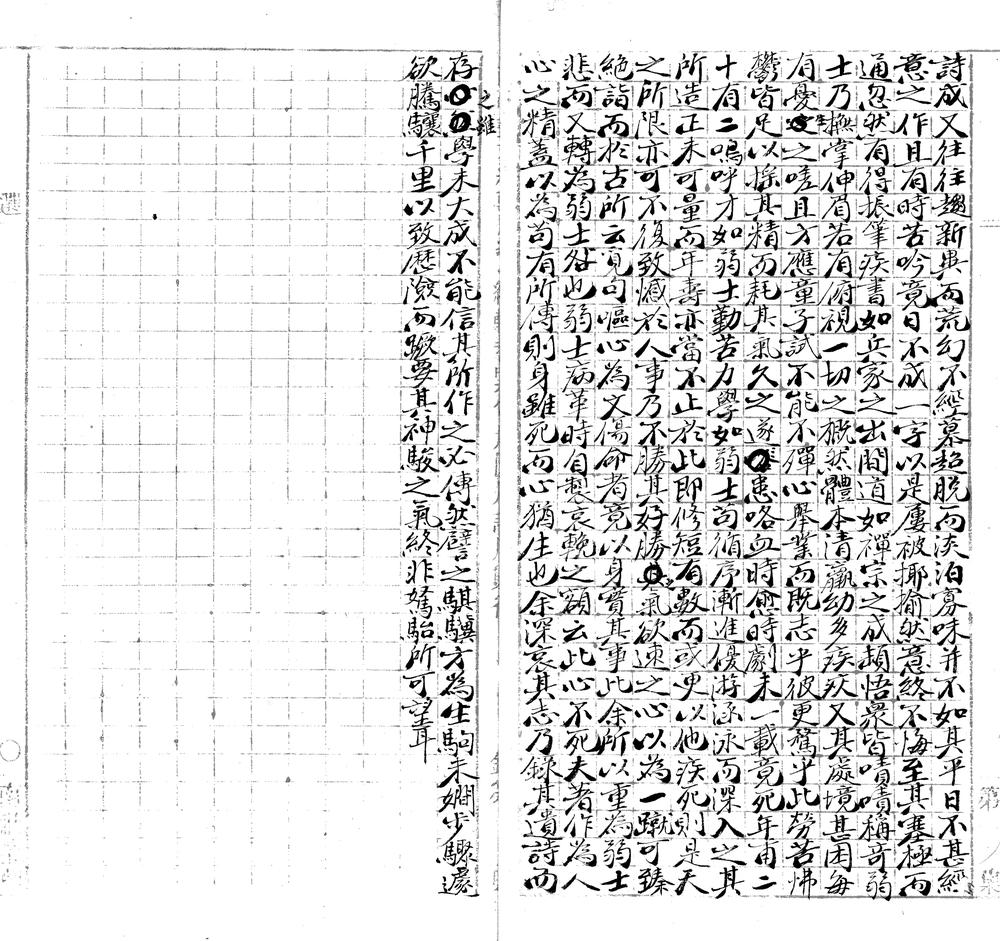 詩成又往往趨新異而荒幻不經慕超脱而淡泊寡味并不如其平日不甚經
意之作且有時苦吟竟日不成一字以是屢被揶揄然意終不悔至其塞極而
通忽然有得振筆疾書如兵家之出間道如禪宗之成頓悟衆皆嘖嘖稱奇弱
士乃撫掌伸眉若有俯視一切之概然體本清羸幼多疾疢又其處境甚困每
有憂生之嗟且方應童子試不能不殫心舉業而既志乎彼更騖乎此勞苦怫
鬱皆足以搖其精而耗其氣久之遂患咯血時愈時劇未一載竟死年甫二
十有二嗚呼才如弱士勤苦力學如弱士苟循序漸進優游涵泳而深入之其
所造正未可量而年壽亦當不止於此即修短有數而或更以他疾死則是天
之所限亦可不復致憾於人事乃不勝其好勝之氣欲速之心以為一蹴可臻
絶詣而於古所云覓句嘔心為文傷命者竟以身實其事此余所以重為弱士
悲而又轉為弱士咎也弱士病革時自製哀輓之額云此心不死夫者作為人
心之精蓋以為苟有所傳則身雖死而心猶生也余深哀其志乃録其遺詩而
存之雖學未大成不能信其所作之必傳然譬之騏驥方為生駒未嫺步驟遽
欲騰驤千里以致歷險而蹶要其神駿之氣終非駑駘所可望耳